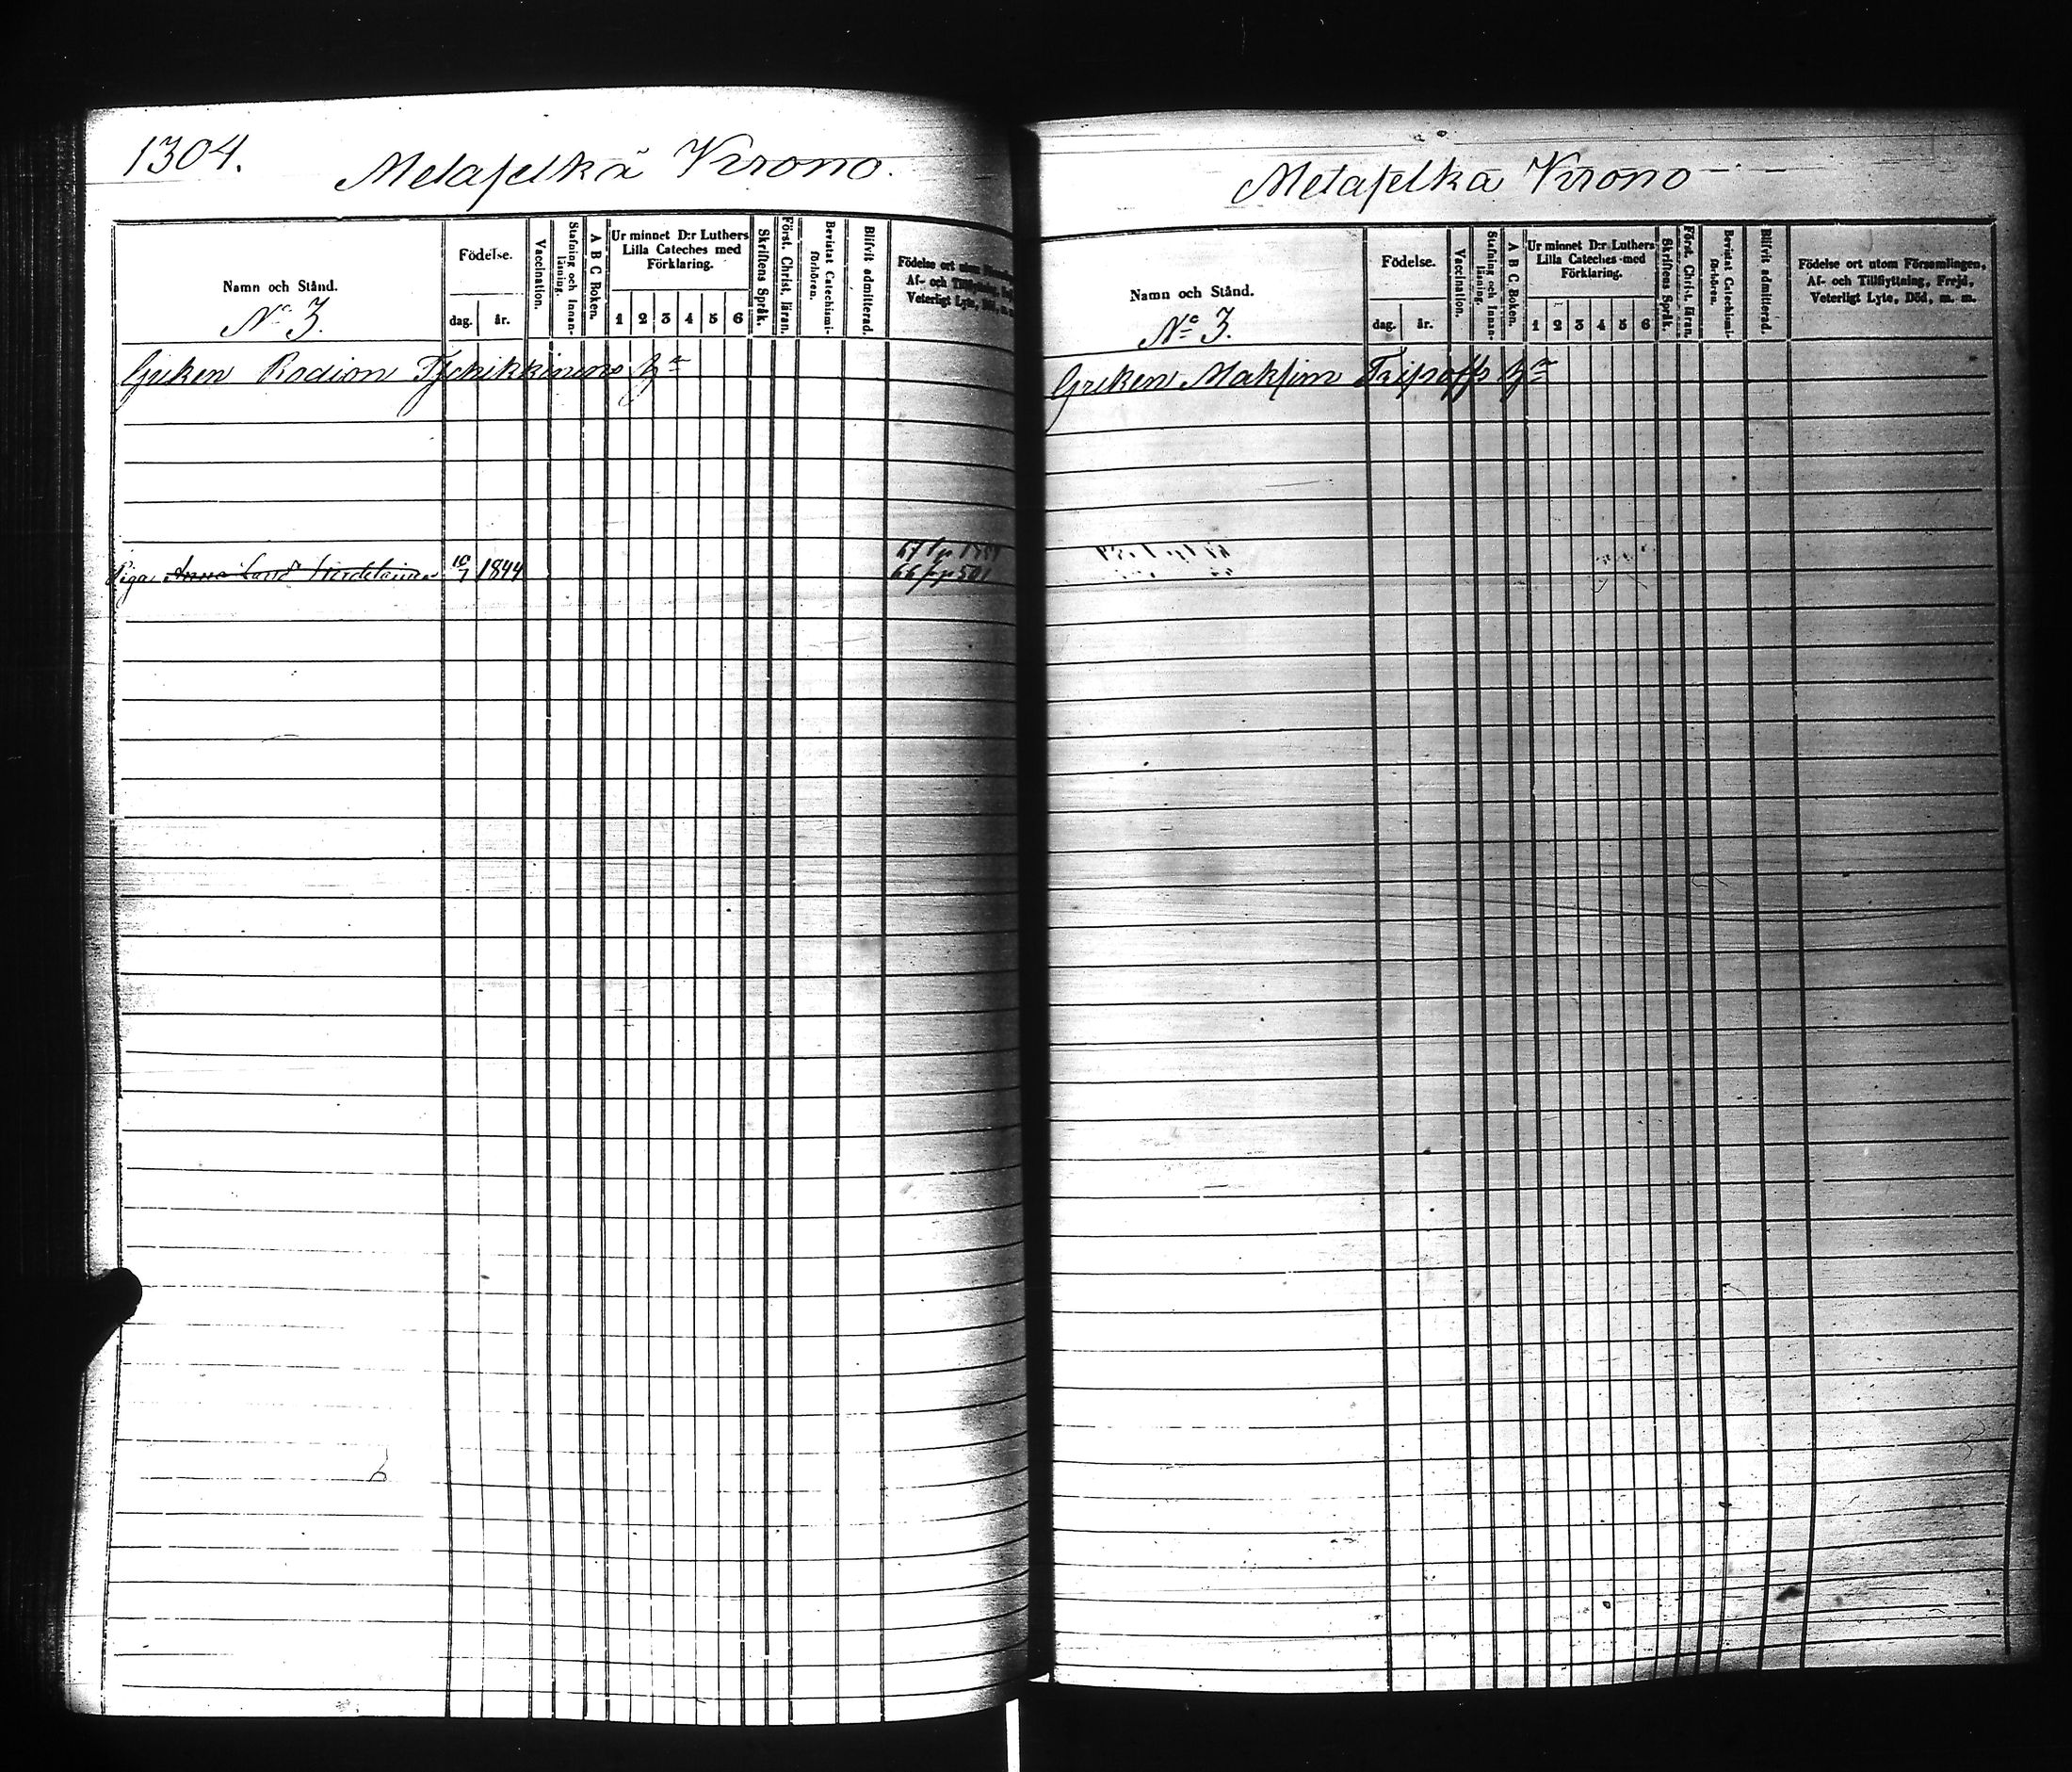 1304.
Metaselkä Krono.
Namn och Stånd.
No 3.
Födelse.
dag. år.
Vaccination.
Stafning och Innanläsning.
A B C Boken.
Ur minnet D:r Luthers
Lilla Cateches med
Förklaring.
1 2 3 4 5 6
Skriftens Språk.
Först. Christ. läran.
Bevistat Catechismi-
förhören.
Blifvit admitterad.
Födelse ort utom
Af- och Tillflyttning,
Veterligt Lyte,
Greken Radion Tschikkinens
Piga Anna 10/7 1844
66 p 501
Metaselkä Krono
Namn och Stånd.
No 3.
Födelse.
dag. år.
Vaccination.
Stafning och Innanläsning.
A B C Boken.
Ur minnet D:r Luthers
Lilla Cateches med
Förklaring.
1 2 3 4 5 6
Skriftens Språk.
Först. Christ. läran.
Bevistat Catechismi-
förhören.
Blifvit admitterad.
Födelse ort utom Församlingen,
Af- och Tillflyttning, Frejd,
Veterligt Lyte, Död, m. m.
Greken Maksim Tripoffs